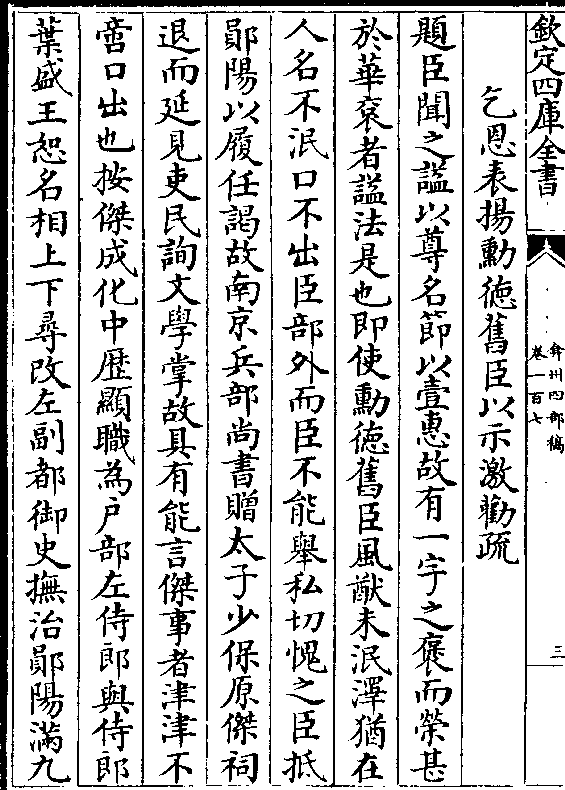 欽定四庫全書
弇州四部稿
卷一百七
三
乞恩表揚勳徳舊臣以示激勸疏
題臣聞之諡以尊名節以壹惠故有一字之褒而榮甚
於華衮者諡法是也即使勳徳舊臣風猷未泯澤猶在
人名不泯口不出臣部外而臣不能舉私切愧之臣抵
鄖陽以履任謁故南京兵部尚書贈太子少保原傑祠
退而延見吏民詢文學掌故具有能言傑事者津津不
啻口出也按傑成化中歴顯職為户部左侍郎與侍郎
葉盛王恕名相上下尋改左副都御史撫治鄖陽滿九